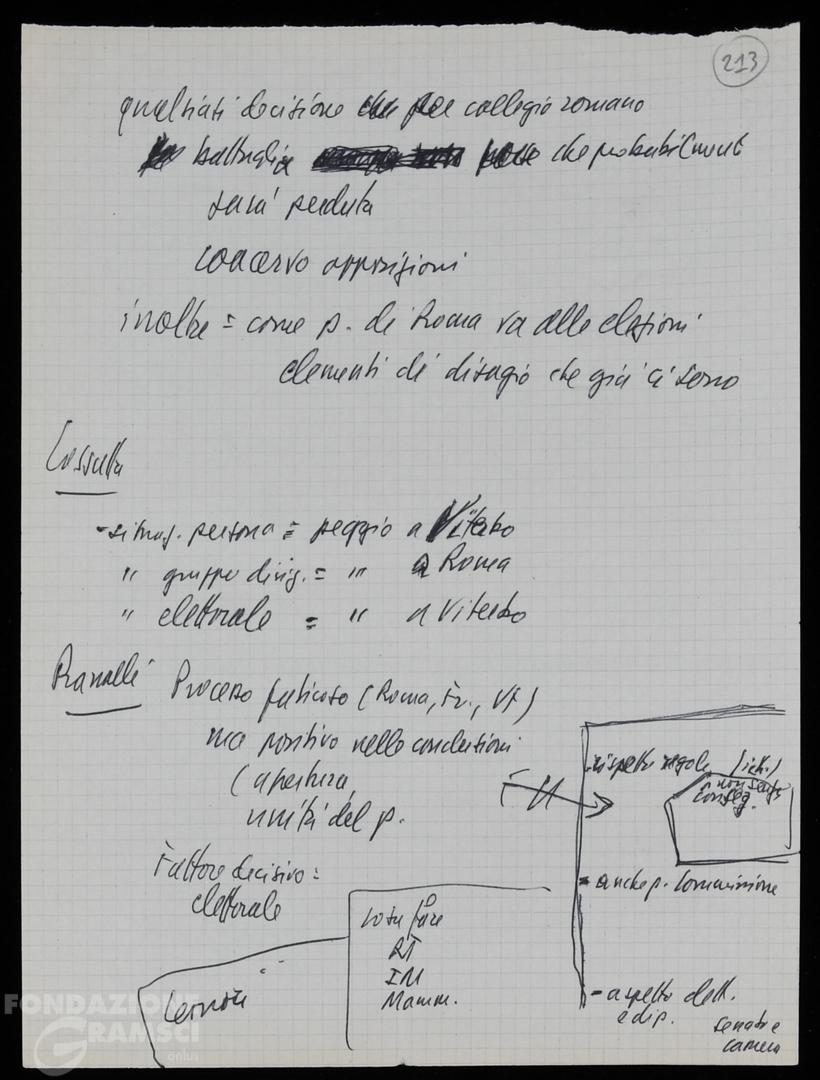 213
qualsiasi decisione per collegio romano
battaglia che probabilmente
sarà perduta
concorso opposizioni
inoltre = come p. di Roma va alle elezioni
elementi di disagio che già ci sono
Cossutta
- situaz. persona = peggio a Viterbo
" gruppo dirig. = " a Roma
" elettorale = " a Viterbo
Ranalli Processo faticoso (Roma, Fr., VT)
ma positivo nelle conclusioni
(apertura,
unità del p.
Fattore decisivo =
elettorale
rispetto regole
non senza
conseg.
= anche p. Commissione
- aspetto elett.
e dip.
Senato e
camera
cosa fare
RT
IM
Mamm.
FONDAZIONE
GRAMSCI
onlus